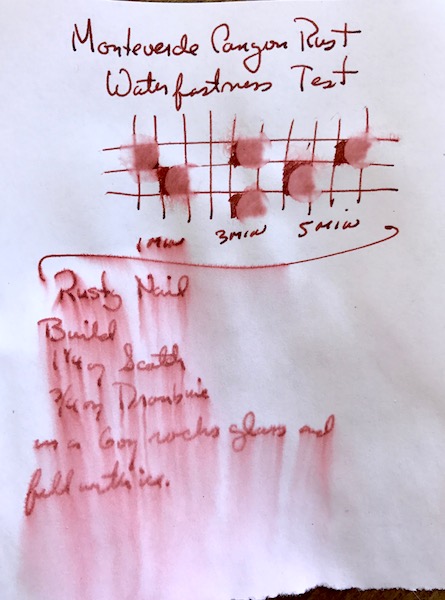 Monteverde Canyon Rust
Waterfastness Test
1 MIN 3 MIN 5 MIN
Rusty Nail
Build
1 1/4 oz Scotch
3/4 oz Drambuie
in a 6oz rocks glass and
fill with ice.